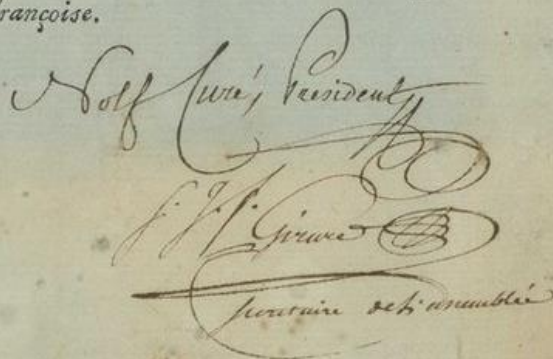 rançoise.
Nolf Curé, President
Girure
secretaire de l'assemblée